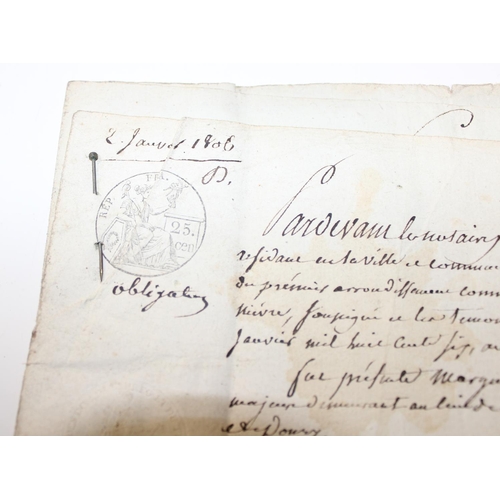 2. Janvier 1806
RÉP. FRA.
25.
cen
obligation
Pardevant le notaire
résidant en la ville et commune
du prémier arrondissement comm
nièvre, soussigné et les temoins
janvier mil huit cents six, a
fut présente Marg
majeure demeurant au lieu de